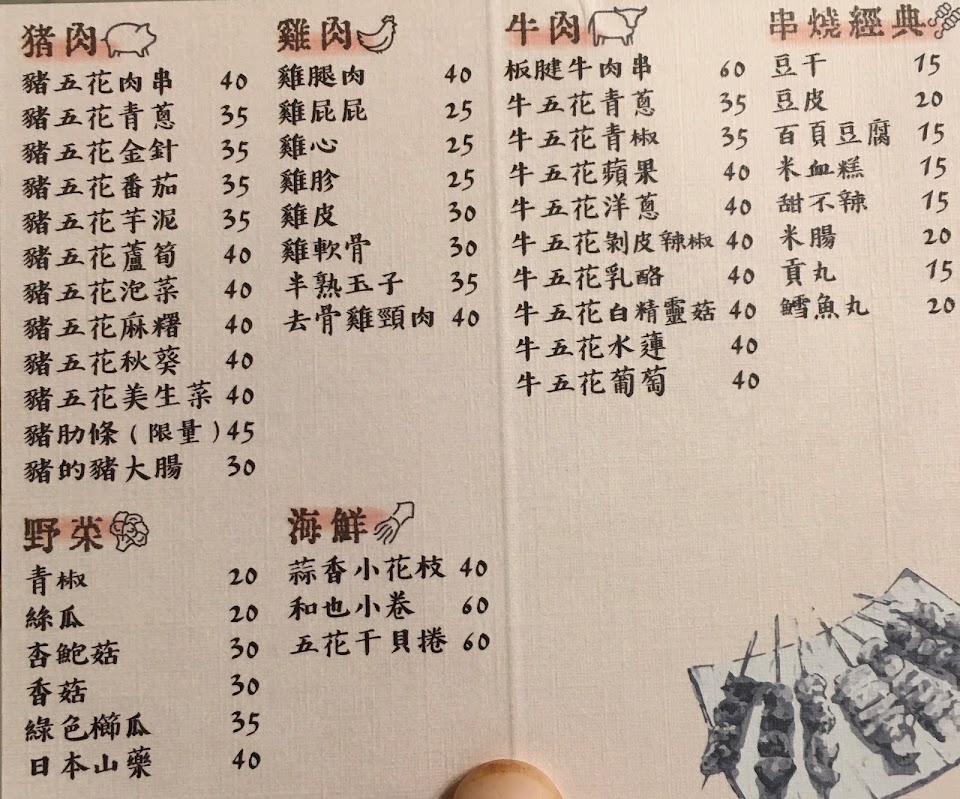 猪肉
豬五花肉串 40
豬五花青蔥 35
豬五花金針 35
豬五花番茄 35
豬五花芋泥 35
豬五花蘆筍 40
豬五花泡菜 40
豬五花麻糬 40
豬五花秋葵 40
豬五花美生菜 40
豬肋條(限量) 45
豬的豬大腸 30
雞肉
雞腿肉 40
雞屁屁 25
雞心 25
雞胗 25
雞皮 30
雞軟骨 30
半熟玉子 35
去骨雞頸肉 40
牛肉
板腱牛肉串 60
牛五花青蔥 35
牛五花青椒 35
牛五花蘋果 40
牛五花洋蔥 40
牛五花剝皮辣椒 40
牛五花乳酪 40
牛五花白精靈菇 40
牛五花水蓮 40
牛五花葡萄 40
串燒經典
豆干 15
豆皮 20
百頁豆腐 15
米血糕 15
甜不辣 15
米腸 20
貢丸 15
鱈魚丸 20
野菜
青椒 20
絲瓜 20
杏鮑菇 30
香菇 30
綠色櫛瓜 35
日本山藥 40
海鮮
蒜香小花枝 40
和也小卷 60
五花干貝捲 60